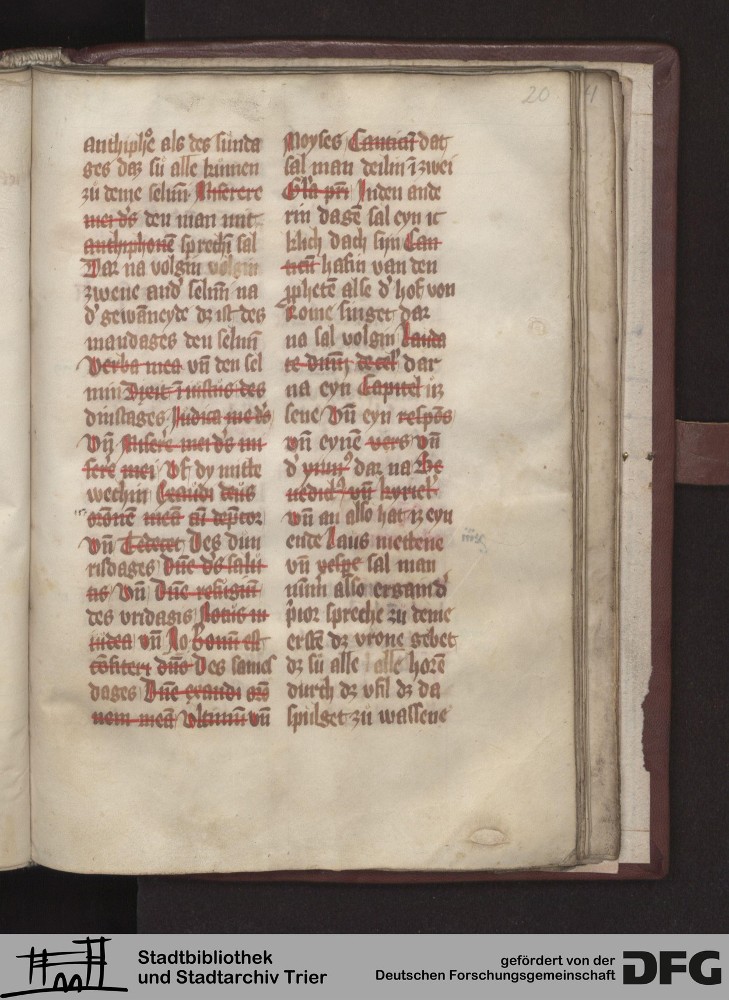 20
4
anthiphē als des sunda
ges daz sü alle kunnen
zu deme selmī Miserere
mei ds den man mit
anthiphonē sprechī sal
Dar na volgin volgin
zwene and' selmī na
d' gewāneyde dz ist des
mandages den selmī
Verba mea vn̄ den sel
min Dixit iniustus des
dinstages Judica me ds
Vn̄ Misere mei ds mi
sere mei Vf dy mitte
wechin Exaudi deus
orōnem meā
vn̄ Te decet Des dun
risdages Dn̄e ds salu
tis Vn̄ Dn̄e refugiū
des vridagis Notus in
iudea vn̄ Bonū est
cōfiteri dn̄o Des sames
dages Dn̄e exaudi orō
nem meā vltimū vn̄
Moyses Canticū dat
sal man deilin ī zwei
Glā pr̄i Inden ande
rin dagē sal eyn it
klich dach sijn Can
ticū hafin van den
ꝓphetē alse d' hof von
Rome singet dar
na sal volgin Lauda
te dnm̄ de cel' dar
na eyn Capitel iz
sene Vn̄ eyn respōs
vn̄ eynē vers vn̄
d' ymn' dar na Be
nedic' vn̄ kyriel'
Vn̄ an also hat iz eyn
ende Laus mettene
vn̄ vespe sal man
also ergan d'
prior spreche zu deme
erstē dz vrone gebet
dz sü alle alle horē
durch dz vfil dz da
spulget zü wassene
Stadtbibliothek
und Stadtarchiv Trier
gefördert von der
Deutschen Forschungsgemeinschaft
DFG